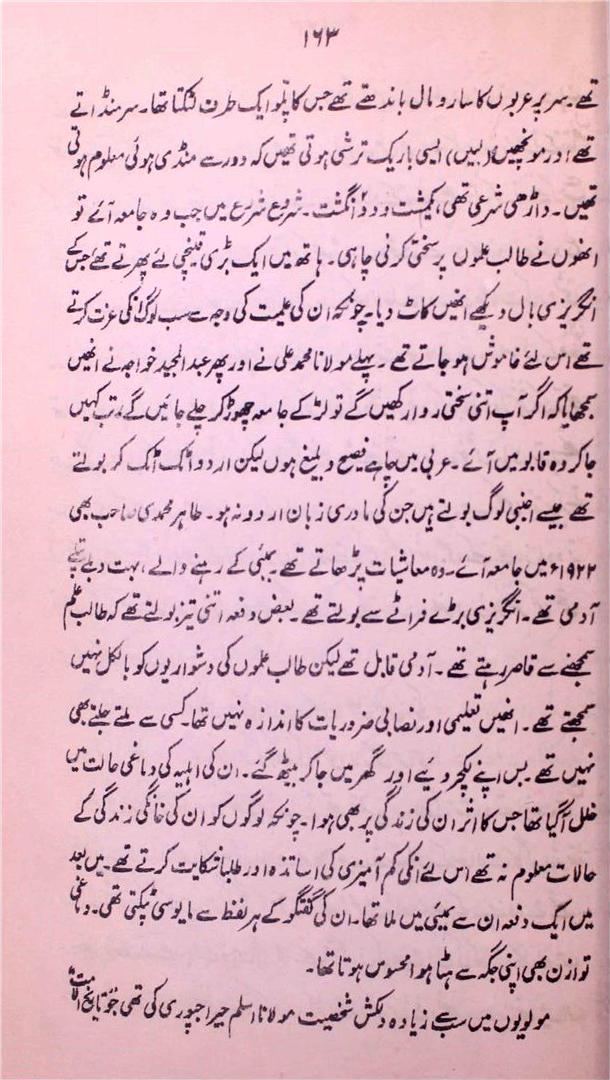 ۱۶۳
تھے۔ سر پر عربوں کا سا رومال باندھتے تھے جس کا پلّو ایک طرف لٹکتا تھا۔ سر منڈاتے
تھے اور مونچھیں (لبیں) ایسی باریک ترشی ہوتی تھیں کہ دور سے منڈی ہوئی معلوم ہوتی
تھیں۔ داڑھی شرعی تھی، یکمشت و دو انگشت۔ شروع شروع میں جب وہ جامعہ آئے تو
انھوں نے طالب علموں پر سختی کرنی چاہی۔ ہاتھ میں ایک بڑی قینچی لئے پھرتے تھے جس کے
انگریزی بال دیکھے انھیں کاٹ دیا۔ چونکہ ان کی علمیت کی وجہ سے سب لوگ انکی عزت کرتے
تھے اس لئے خاموش ہو جاتے تھے۔ پہلے مولانا محمد علی نے اور پھر عبدالمجید خواجہ نے انھیں
سمجھایا کہ اگر آپ اتنی سختی روا رکھیں گے تو لڑکے جامعہ چھوڑ کر چلے جائیں گے، تب کہیں
جا کر وہ قابو میں آئے۔ عربی میں چاہے فصیح و بلیغ ہوں لیکن اردو اٹک اٹک کر بولتے
تھے جیسے اجنبی لوگ بولتے ہیں جن کی مادری زبان اردو نہ ہو۔ طاہر محمدی صاحب بھی
۱۹۲۲ء میں جامعہ آئے۔ وہ معاشیات پڑھاتے تھے۔ بمبئی کے رہنے والے، بہت دبلے پتلے
آدمی تھے۔ انگریزی بڑے فراٹے سے بولتے تھے۔ بعض دفعہ اتنی تیز بولتے تھے کہ طالب علم
سمجھنے سے قاصر رہتے تھے۔ آدمی قابل تھے لیکن طالب علموں کی دشواریوں کو بالکل نہیں
سمجھتے تھے۔ انھیں تعلیمی اور نصابی ضروریات کا اندازہ نہیں تھا۔ کسی سے ملتے جلتے بھی
نہیں تھے۔ بس اپنے لکچر دیئے اور گھر میں جا کر بیٹھ گئے۔ ان کی اہلیہ کی دماغی حالت میں
خلل آ گیا تھا جس کا اثر ان کی زندگی پر بھی ہوا۔ چونکہ لوگوں کو ان کی خانگی زندگی کے
حالات معلوم نہ تھے اس لئے انکی کم آمیزی کی اساتذہ اور طلبا شکایت کرتے تھے۔ میں بعد
میں ایک دفعہ ان سے بمبئی میں ملا تھا۔ ان کی گفتگو کے ہر لفظ سے مایوسی ٹپکتی تھی۔ دماغی
توازن بھی اپنی جگہ سے ہٹا ہوا محسوس ہوتا تھا۔
مولویوں میں سب سے زیادہ دلکش شخصیت مولانا اسلم جیراجپوری کی تھی جو تاریخ الامت